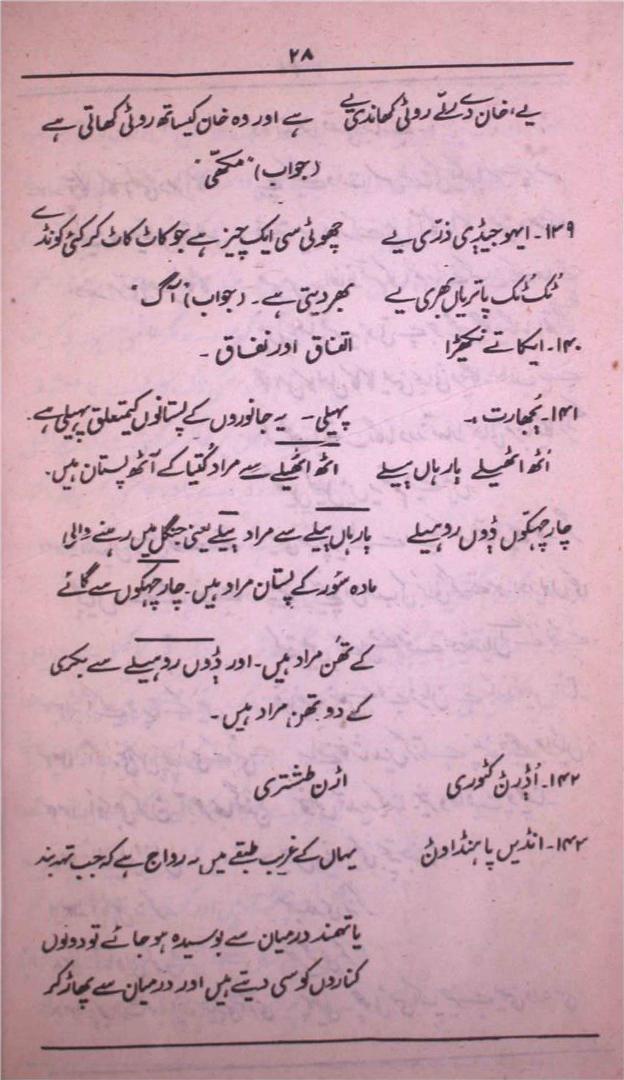 ۲۸
یے، خان دے رلے روٹی کھاندی یے ہے اور وہ خان کیساتھ روٹی کھاتی ہے
(جواب) "مکھّی"
۱۳۹۔ ایہو جیڈی ذرّی یے چھوٹی سی ایک چیز ہے جو کاٹ کاٹ کر کئی کونڈے
ٹک ٹک پاتریاں بھری یے بھر دیتی ہے۔ (جواب) "آگ"
۱۴۰۔ ایکا تے نکھیڑا اتفاق اور نفاق ۔
۱۴۱۔ بُجھارت :۔ پہیلی ۔ یہ جانوروں کے پستانوں کیمتعلق پہیلی ہے۔
اُٹھ اٹھیلے بارہاں بیلے اٹھ اٹھیلے سے مراد کُتیا کے آٹھ پستان ہیں۔
چار چہکوں ڈوں روہیلے بارہاں بیلے سے مراد بیلے یعنی جنگل میں رہنے والی
مادہ سؤر کے پستان مراد ہیں۔ چار چہکوں سے گائے
کے تھن مراد ہیں۔ اور ڈوں روہیلے سے بکری
کے دو تھن مراد ہیں۔
۱۴۲۔ اُڈرن کٹوری اڑن طشتری
۱۴۳۔ انڈیں پاہنڈاوݨ یہاں کے غریب طبقے میں یہ رواج ہے کہ جب تہہ بند
یا تہمند درمیان سے بوسیدہ ہو جائے تو دونوں
کناروں کو سی دیتے ہیں اور درمیان سے پھاڑ کر